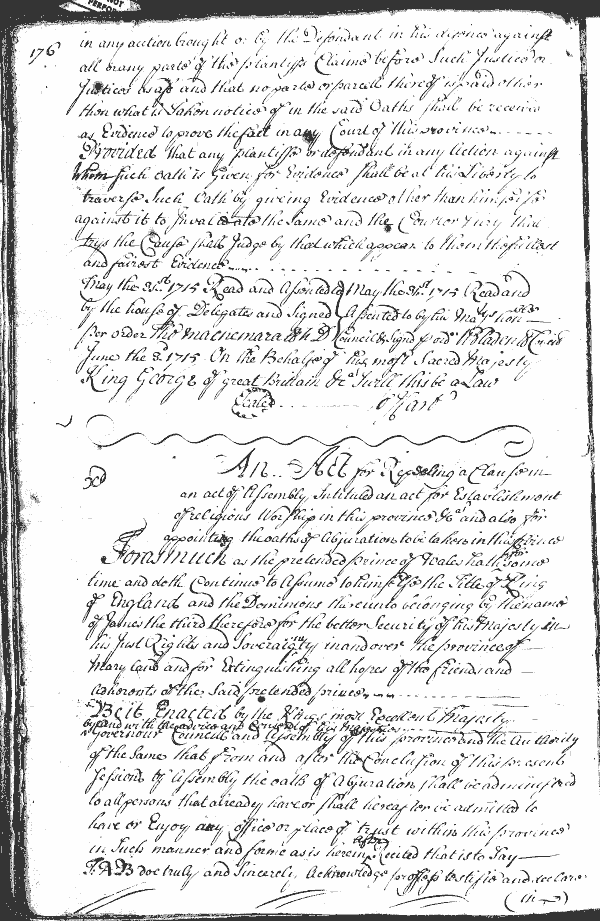 176
in any action brought or by the Defendant in his defence against
all or any parte of the plantiffs Claime before Such Justice or
Justices as afd and that no parte or parcell thereof is paid other
then what is taken notice of in the said Oaths shall be received
as Evidence to prove the fact in any Court of this province
Provided that any plantiffe or defendant in any Action against
whom such oath is Given for Evidence shall be at his Liberty to
traverse Such Oath by giveing Evidence other than himselfe
against it to Invalidate the Same and the Court or Jury that
trys the Cause shall Judge by that which appear to them the fullest
and fairest Evidence
May the 31st 1715 Read and Assented May the 31st 1715 Read and
by the house of Delegates and Signed Assented to by his Matys hon
Per order Tho Macnemara Council & Signd p ord W Bladen
June the 3 1715 On the Behalfe of his most Sacred Majesty
King George of great Brittain &ca I will this be a Law
Seale Jo Hart
An Act for Repealing a Clause in
an act of Assembly Intituled an act for Establishment
of religious Worship in this province &ca and also for
appointing the oaths of Abjuration to be taken in this province
Forasmuch as the pretended prince of Wales hath for some
time and doth Continue to Assume to himselfe the Title of King
of England and the Dominions thereunto belonging by the name
of James the third therefore for the better Security of his Majesty in
his Just Rights and Soveraigty in and over the province of
Mary land and for Extinguishing all hopes of the friends and
Adherents of the Said pretended prince
Be it Enacted by the Kings most Excellent Majesty
by and with the advice and Consent of his Majestys
Governour Councill and Assembly of this province and the Authority
of the Same that from and after the Conclusion of this present
Session of Assembly the oath of Abjuration shall be administred
to all persons that already have or shall hereafter be admitted to
have or Enjoy any office or place of trust within this province
in Such manner and forme as is herein after Recited that is to Say
I. A B doe truly and Sincerely Acknowledge professe testifie and declare
(in